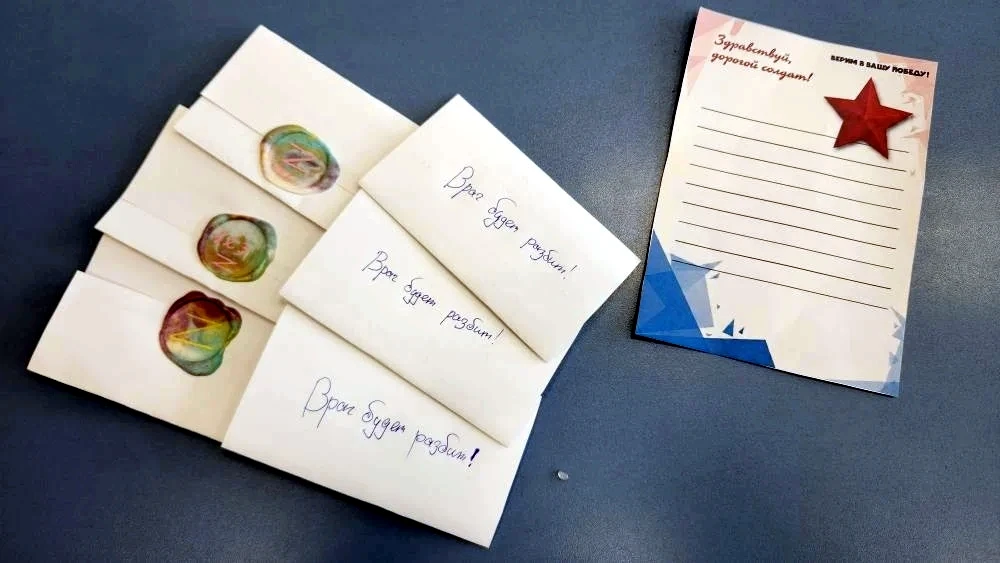 Здравствуй,
дорогой солдат!
ВЕРИМ В ВАШУ ПОБЕДУ!
Враг будет разбит!
Враг будет разбит!
Враг будет разбит!